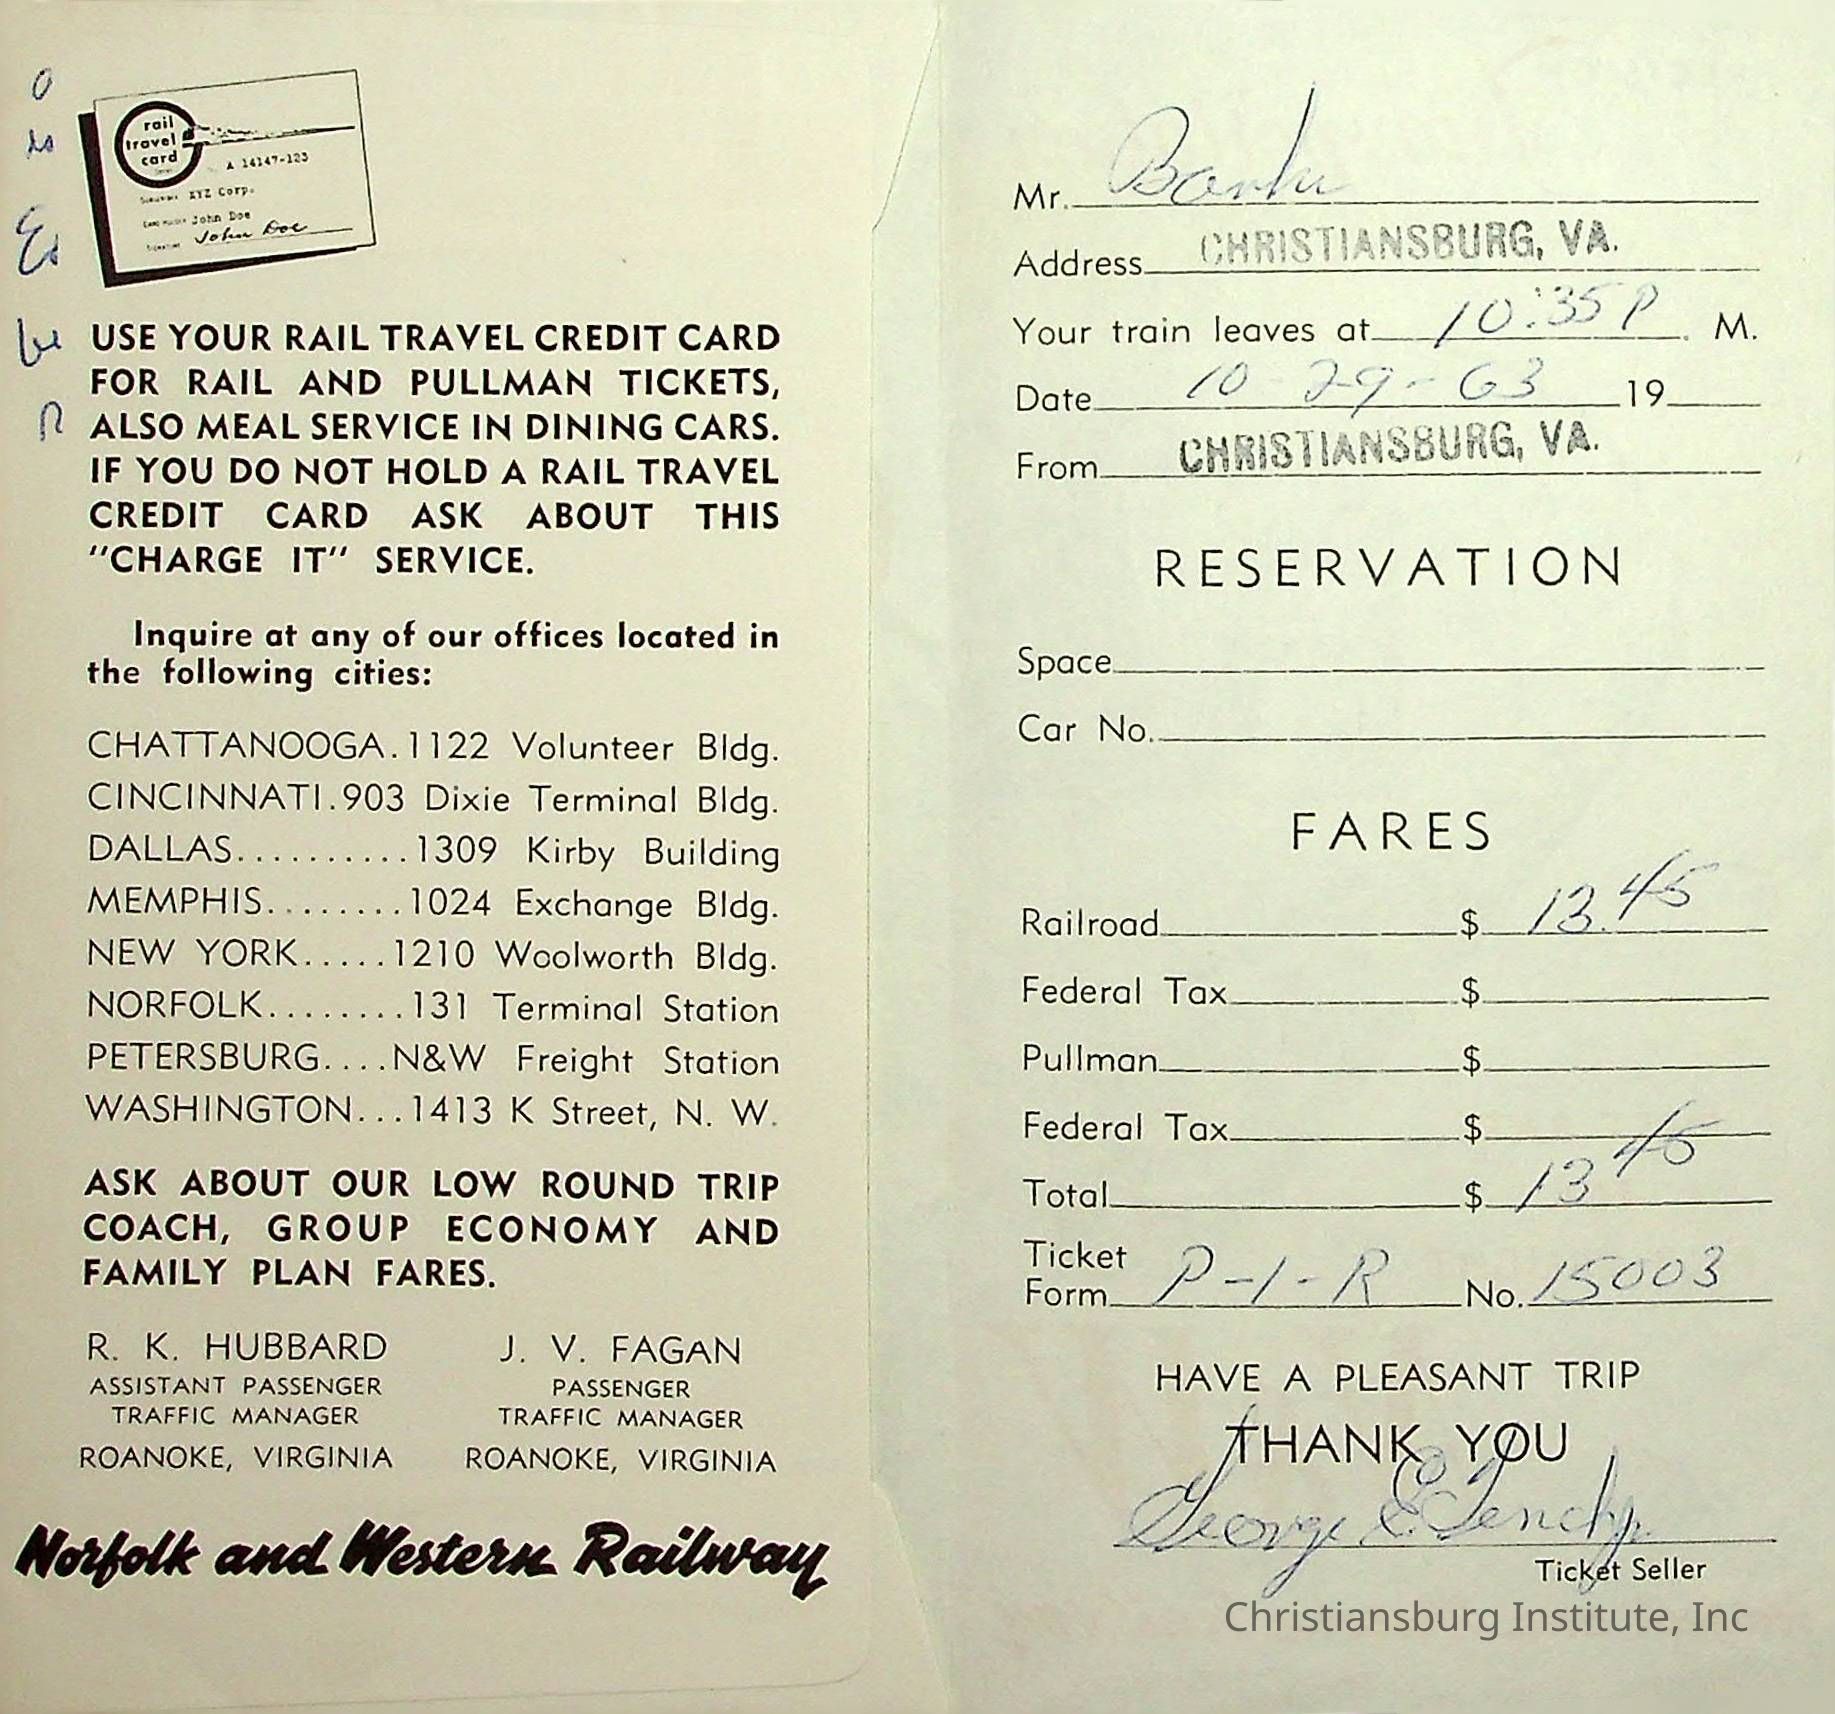 rail
travel
card
A 14147-123
XYZ Corp.
John Doe
John Doe
USE YOUR RAIL TRAVEL CREDIT CARD
FOR RAIL AND PULLMAN TICKETS,
ALSO MEAL SERVICE IN DINING CARS.
IF YOU DO NOT HOLD A RAIL TRAVEL
CREDIT CARD ASK ABOUT THIS
"CHARGE IT" SERVICE.
Inquire at any of our offices located in
the following cities:
CHATTANOOGA.1122 Volunteer Bldg.
CINCINNATI.903 Dixie Terminal Bldg.
DALLAS..........1309 Kirby Building
MEMPHIS........1024 Exchange Bldg.
NEW YORK.....1210 Woolworth Bldg.
NORFOLK........131 Terminal Station
PETERSBURG....N&W Freight Station
WASHINGTON...1413 K Street, N. W.
ASK ABOUT OUR LOW ROUND TRIP
COACH, GROUP ECONOMY AND
FAMILY PLAN FARES.
R. K. HUBBARD
ASSISTANT PASSENGER
TRAFFIC MANAGER
ROANOKE, VIRGINIA
J. V. FAGAN
PASSENGER
TRAFFIC MANAGER
ROANOKE, VIRGINIA
Norfolk and Western Railway
Mr.
Address CHRISTIANSBURG, VA.
Your train leaves at 10:35 P. M.
Date 10-29-63 19
From CHRISTIANSBURG, VA.
RESERVATION
Space
Car No.
FARES
Railroad $ 13.45
Federal Tax $
Pullman $
Federal Tax $
Total $ 13 45
Ticket
Form P-1-R No. 15003
HAVE A PLEASANT TRIP
THANK YOU
George E.
Ticket Seller
Christiansburg Institute, Inc